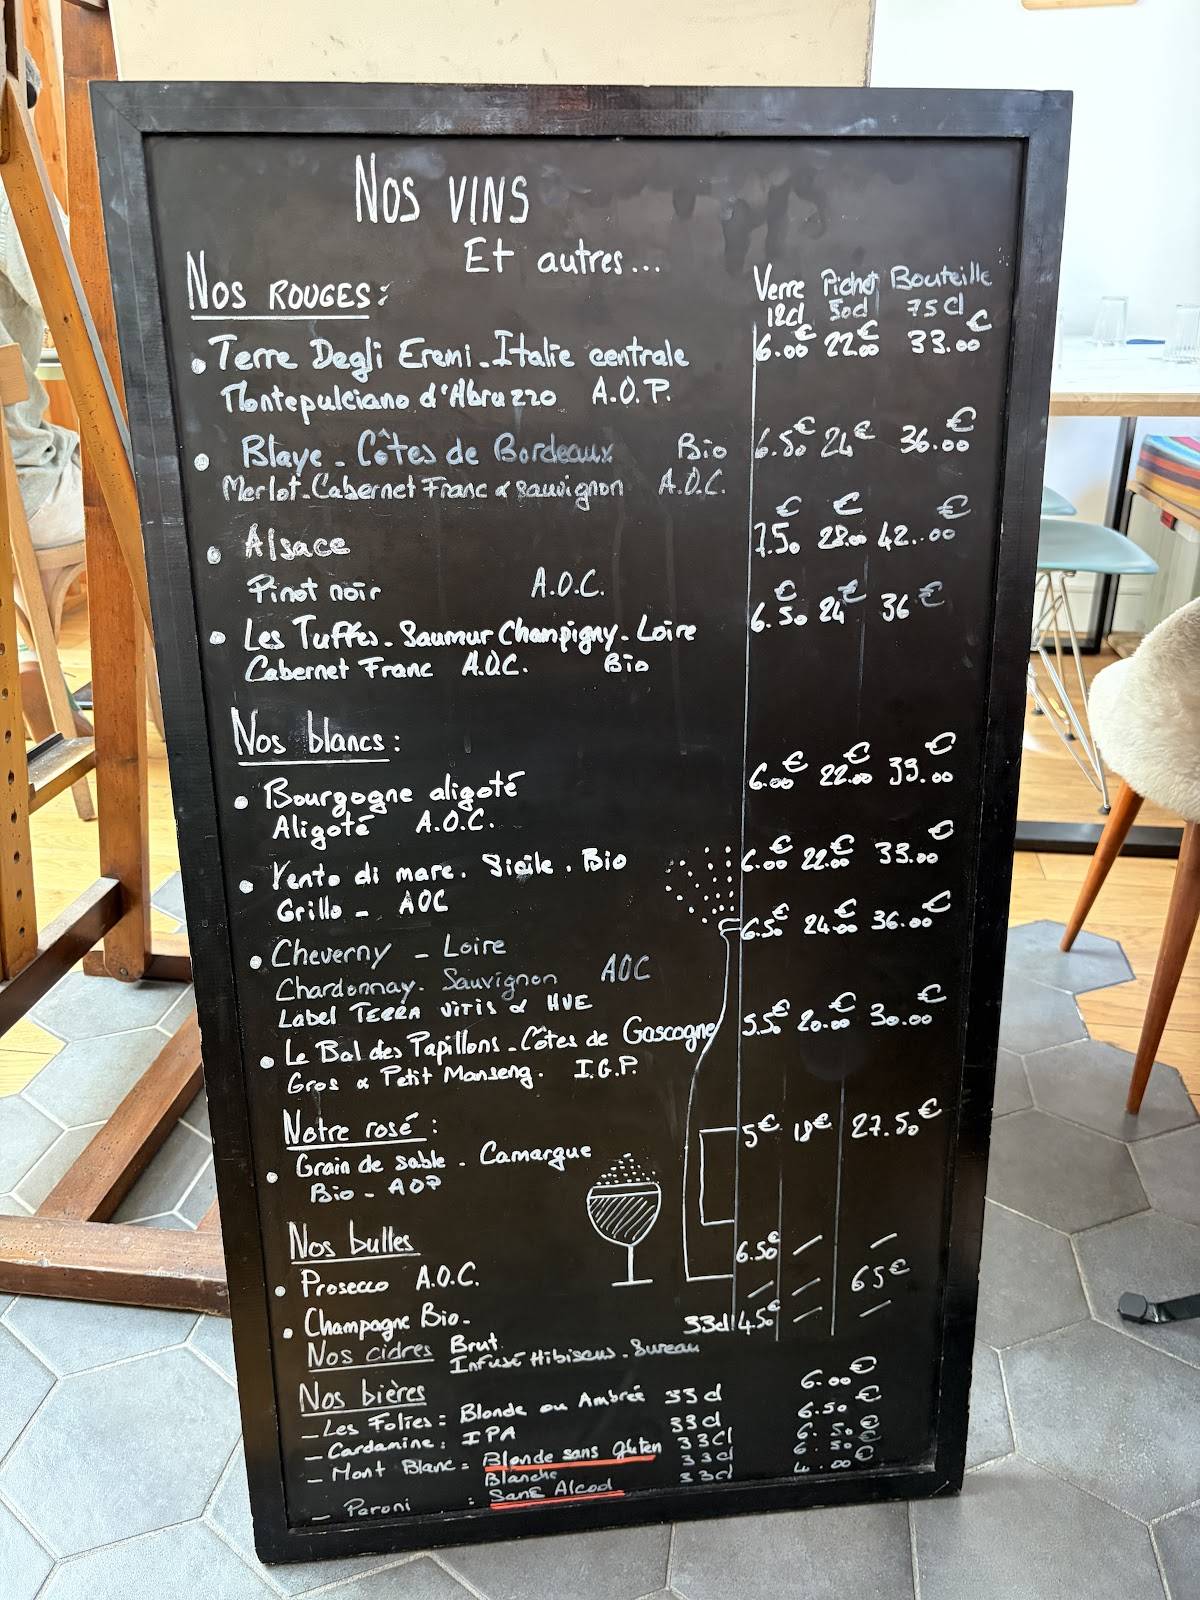 NOS VINS
Et autres...
NOS ROUGES:
Verre Pichet Bouteille
12cl 50cl 75cl
• Terre Degli Eremi - Italie centrale 6.00€ 22.00€ 33.00€
Montepulciano d'Abruzzo A.O.P.
• Blaye - Côtes de Bordeaux Bio 6.50€ 24€ 36.00€
Merlot-Cabernet Franc & sauvignon A.O.C.
• Alsace 7.50€ 28.00€ 42.00€
Pinot noir A.O.C.
• Les Tuffes - Saumur Champigny - Loire 6.50€ 24€ 36€
Cabernet Franc A.O.C. Bio
Nos blancs:
• Bourgogne aligoté 6.00€ 22.00€ 33.00€
Aligoté A.O.C.
• Vento di mare. Sicile. Bio 6.00€ 22.00€ 33.00€
Grillo - AOC
• Cheverny - Loire 6.50€ 24.00€ 36.00€
Chardonnay. Sauvignon AOC
Label TERRA VITIS & HVE
• Le Bal des Papillons - Côtes de Gascogne 5.50€ 20.00€ 30.00€
Gros & Petit Manseng. I.G.P.
Notre rosé: 5€ 18€ 27.50€
• Grain de sable - Camargue
Bio - AOP
Nos bulles
• Prosecco A.O.C. 6.50€ / /
• Champagne Bio - / / 65€
Nos cidres Brut 33cl 4.50€ / /
Infusé Hibiscus. Sureau
Nos bières
- Les Folies: Blonde ou Ambrée 33cl 6.00€
- Cardamine: IPA 33cl 6.50€
- Mont Blanc: Blonde sans gluten 33cl 6.50€
Blanche 33cl 6.50€
- Peroni : Sans Alcool 33cl 4.00€